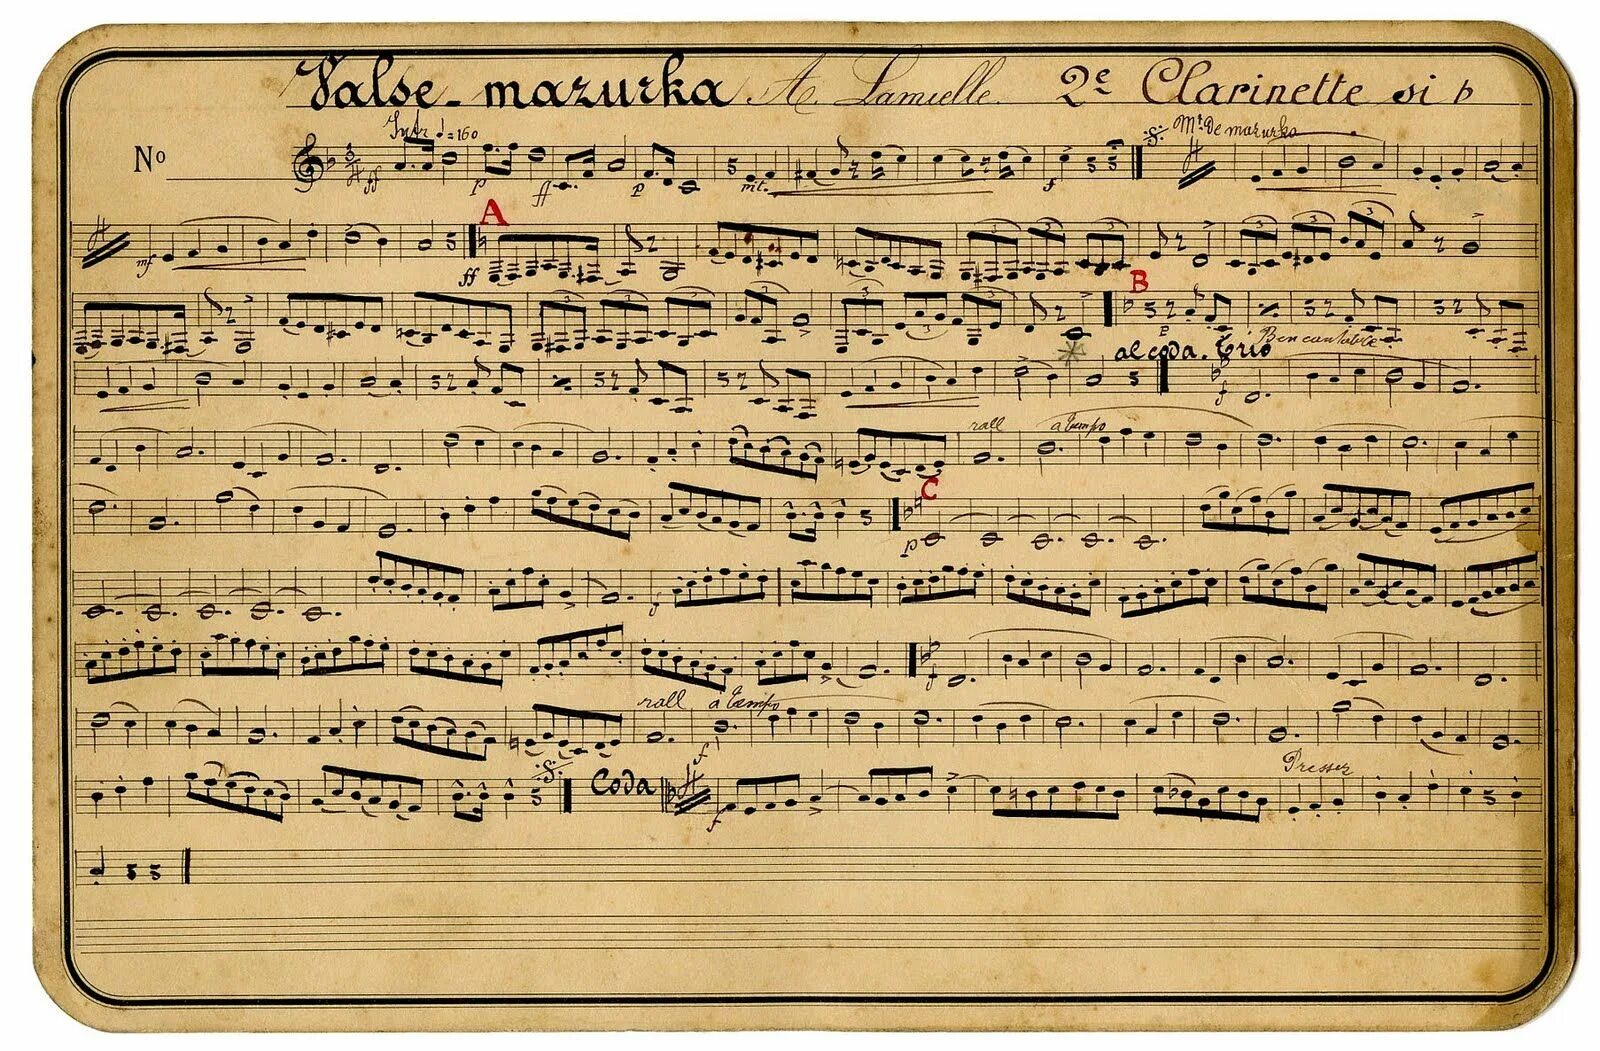 Valse - mazurka A. Lamielle. 2e Clarinette si b
Intr ♩=160 Mt. De mazurka
No
ff p ff p mf. f
mf A ff
B
p Ben cantabile
al coda. Trio
f
rall a tempo
C
p
f
f
rall a tempo
f
Coda Pressez
f